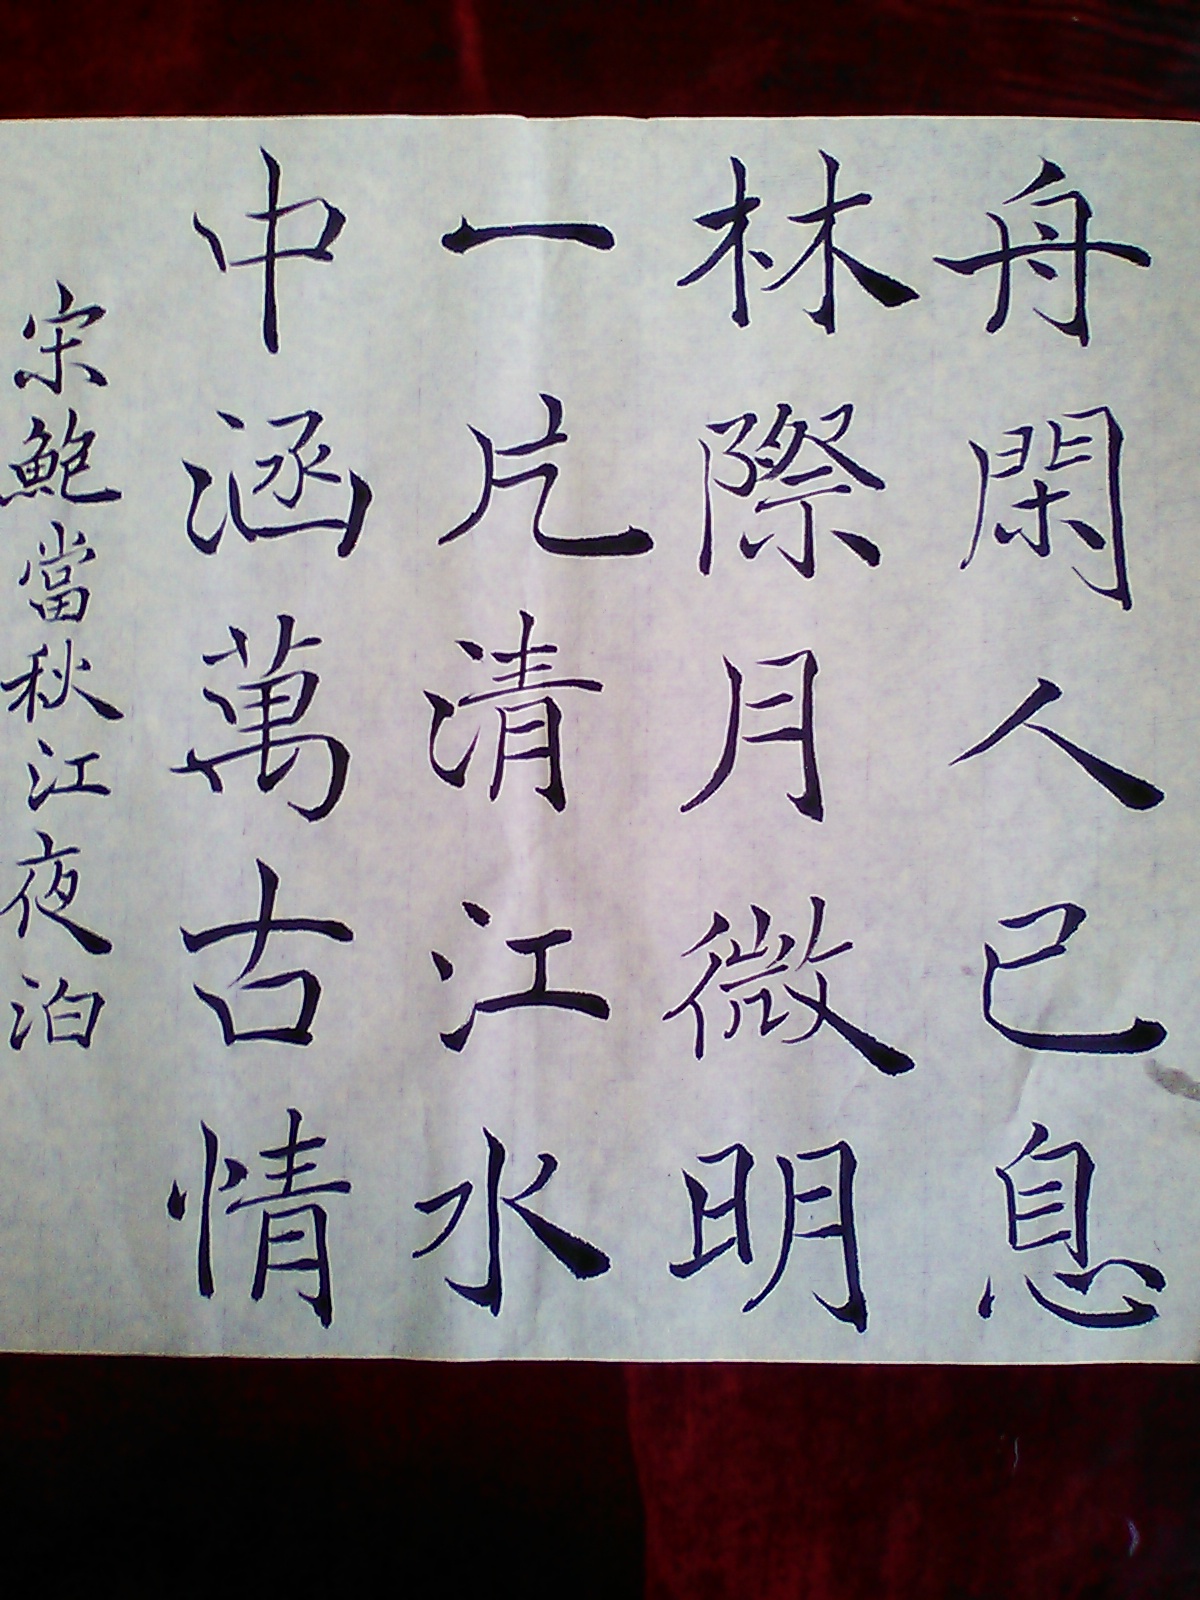 舟閑人已息
林際月微明
一片清江水
中涵萬古情
宋鮑當秋江夜泊